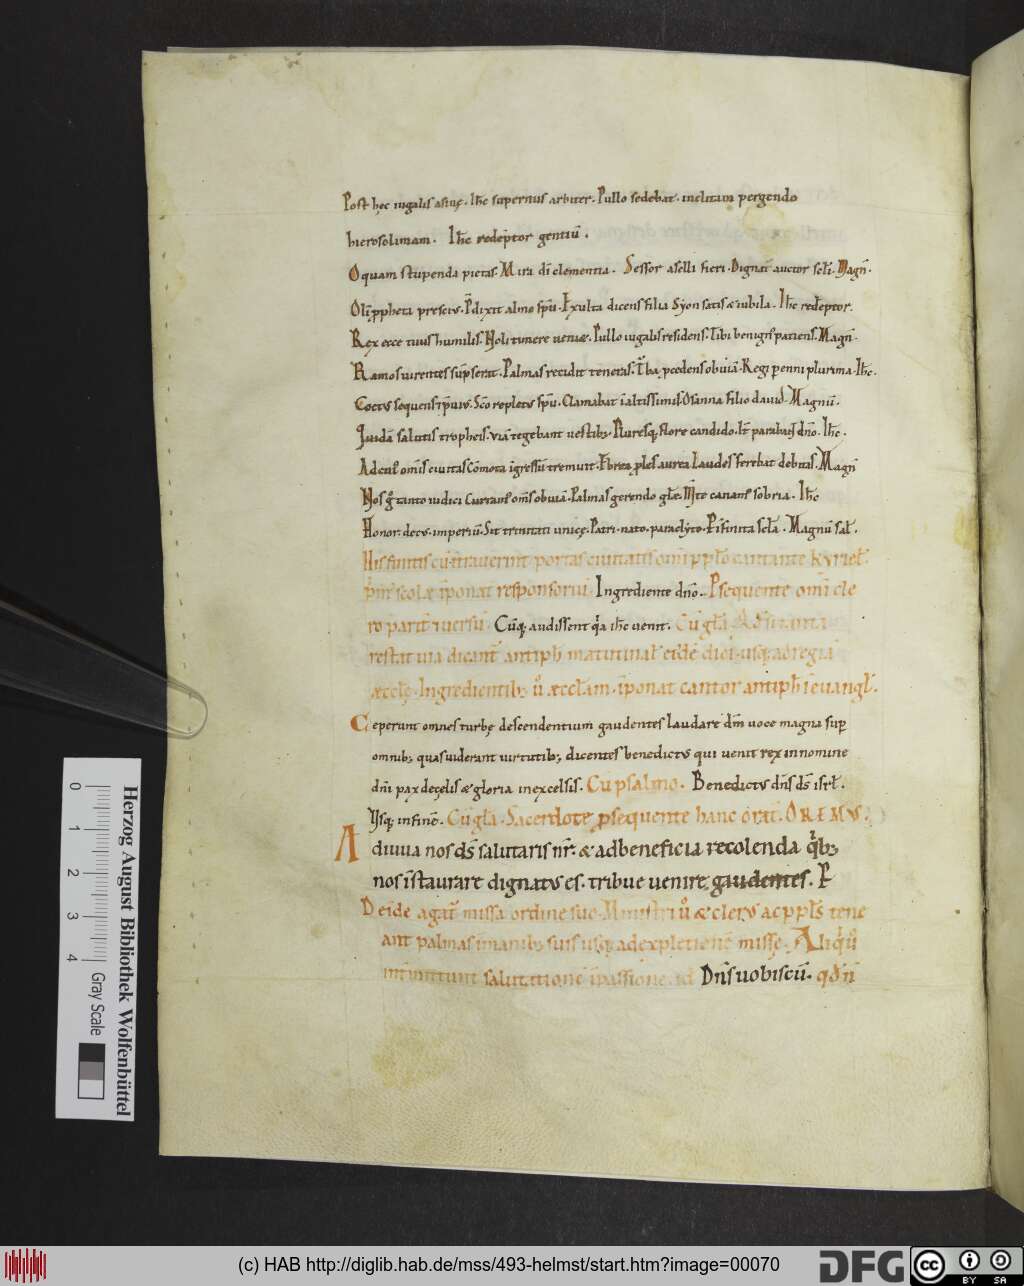 Post hęc iugalis asinę. Ihc supernus arbiter. Pullo sedebat. inclitam pergendo
hierosolimam. Ihc redēptor gentiū.
O quam stupenda pietas. Mira dī clementia. Sessor aselli fieri. Dignaī auctor scłi. Magñ.
Olī ꝓpheta prescius. P̄dixit almo spū. Exulta dicens filia Syon satis & iubila. Ihc redēptor.
Rex ecce tuus humilis. Noli timere ueniæ. Pullo iugalis residens. Tibi benignꝰ patiens. Magñ.
Ramos uirentes sūpserat. Palmas recidit teneras. Tba ꝓcedens obuiā. Regi perenni plurima. Ihc.
Coetus sequens ⁊ p̄uius. Sc̄o repletus spū. Clamabat ī altissimis. Osanna filio dauid. Magnū.
Quidā salutis tropheis. uiā tegebant uestibꝫ. Pluresqꝫ flore candido. Iħc.
Ad cuiꝰ om̄is ciuitas Cōmota īgressū tremuit. Ebrea ꝓles aurea Laudes ferebat debitas. Magñ
Nos g̊ tanto iudici Curramꝰ om̄s obuiā. Palmas gerendo głæ. M̄te canamꝰ sobria. Ihc
Honor. decus. imperiū. Sit trinitati unicę. Patri. nato. paraclyto. P īfinita scła. Magnū sał.
His finitis cū ītrauerint portas ciuitatis om̄i ppło cantante kyrieł.
p̄m̄ scolæ īponat responsoriū. Ingrediente dn̄o. Psequente omī cle
ro pariť ⁊ uersū. Cūqꝫ audissent qa ihc uenit. Cū głā. Ad
restat uia dicanť antiph matutinał eidē diei. usqꝫ ad regiā
æcclę. Ingredientibꝫ ū æcclam. īponat cantor antiph ī euangł.
Ceperunt omnes turbę descendentium gaudentes laudare dm̄ uoce magna sup
omnibꝫ quas uiderant uirtutibꝫ, dicentes benedictus qui uenit rex in nomine
dn̄i pax de cęlis & gloria in excelsis. Cū psalmo. Benedictus dn̄s ds̄ isrł.
Usqꝫ in finē. Cū głā. Sacerdote ꝓsequente hanc orat̄. OREMUS.
Adiuua nos ds̄ salutaris nr̄. & ad beneficia recolenda qbꝫ
nos īstaurare dignatus es. tribue uenire gaudentes. P
Deīde agať missa ordine suo. Ministri ū & clerus ac ppłs tene
ant palmas ī manibꝫ suis usqꝫ ad expletionē missę. Aliqū
salutationē ī passione id Dn̄s uobiscū. qd n̄
0 1 2 3 4
Gray Scale
Herzog August Bibliothek Wolfenbüttel
(c) HAB http://diglib.hab.de/mss/493-helmst/start.htm?image=00070
DFG
cc BY SA